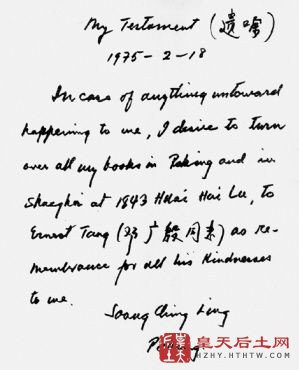 My Testament (遗嘱)
1975-2-18
In case of anything untoward
happening to me, I desire to turn
over all my books in Peking and in
Shanghai at 1843 Huai Hai Lu, to
Ernest Tang (邓广殷同志) as re-
membrance for all his kindnesses
to me.
Soong Ching Ling
Peking
皇天后土网
HZHY.HTHTW.COM